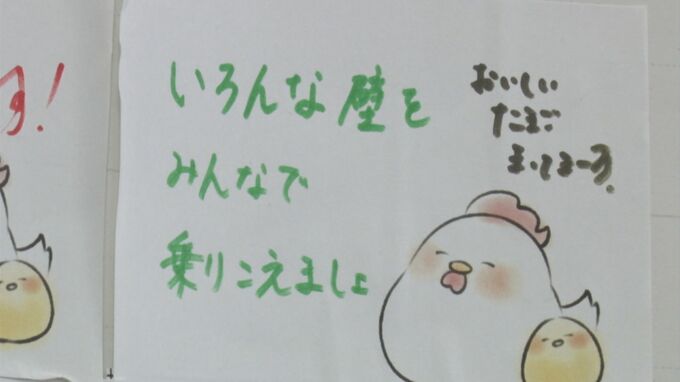 す!
いろんな壁を
みんなで
乗りこえましょ
おいしい
たまご
まってまーす。